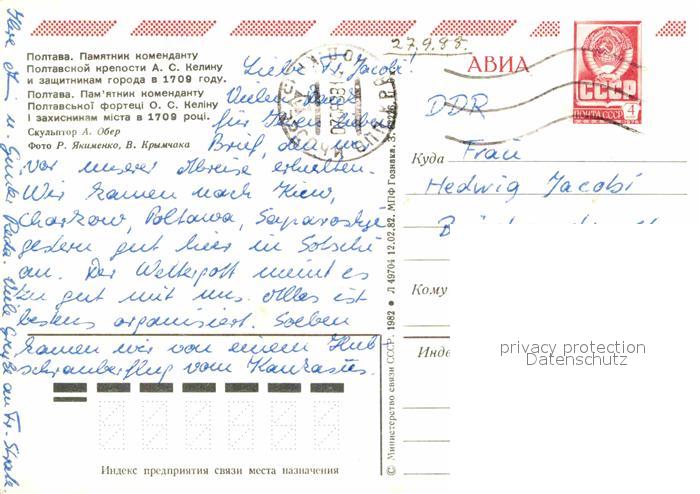 Полтава. Памятник коменданту
Полтавской крепости А. С. Келину
и защитникам города в 1709 году.
Полтава. Пам'ятник коменданту
Полтавської фортеці О. С. Келіну
і захисникам міста в 1709 році.
Скульптор А. Обер
Фото Р. Якименко, В. Крымчака
27.9.88.
Liebe Fr. Jacobi!
Vielen Dank
für Ihren lieben
Brief, den wir
vor unserer Abreise erhielten.
Wir kamen nach Kiew,
Charkow, Poltawa, Saporoshje
gestern gut hier in Sotschi
an. Der Wettergott meint es
zu gut mit uns. Alles ist
bestens organisiert. Soeben
kamen wir von einem Hub-
schrauberflug vom Kaukasus.
Ihre
u. Günter
Viele Grüße an Fr.
АВИА
СССР
ПОЧТА СССР
4
DDR
Куда
Frau
Hedwig Jacobi
Кому
Инде
privacy protection
Datenschutz
Индекс предприятия связи места назначения
© Министерство связи СССР. 1982 • Л 49704 12.02.82. МПФ Гознака. З.